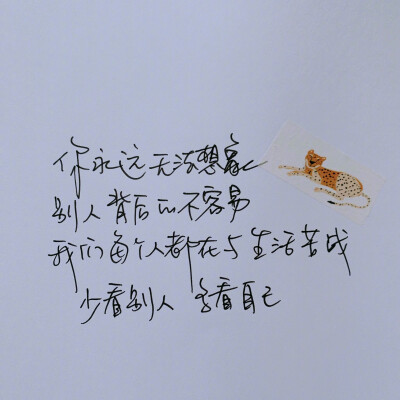 你永远无法想象
别人背后的不容易
我们每个人都在与生活苦战
少看别人 多看自己